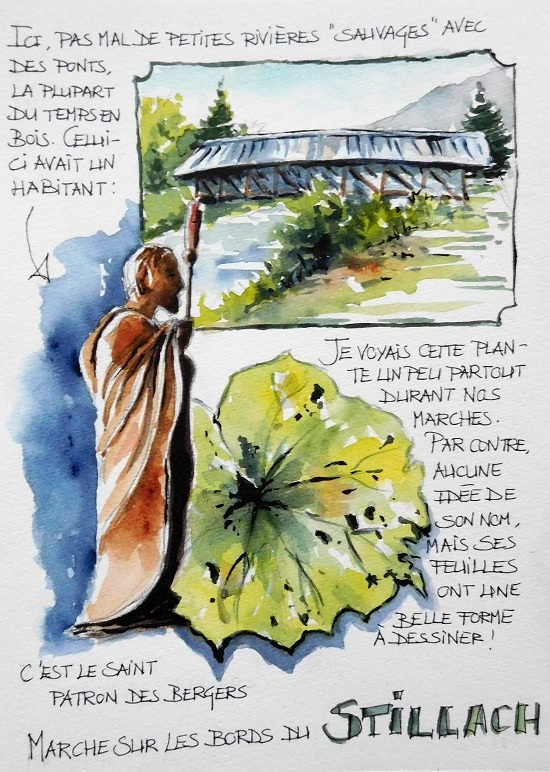 Ici, pas mal de petites rivières "sauvages" avec
des ponts,
la plupart
du temps en
bois. Celui-
ci avait un
habitant :
Je voyais cette plan-
te un peu partout
durant nos
marches.
Par contre,
aucune
idée de
son nom,
mais ses
feuilles
ont une
belle forme
à dessiner !
C'est le Saint
patron des bergers
Marche sur les bords du STILLACH